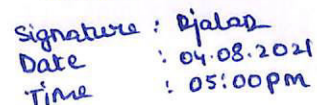 Signature : Djalad
Date : 04.08.2021
Time : 05:00pm